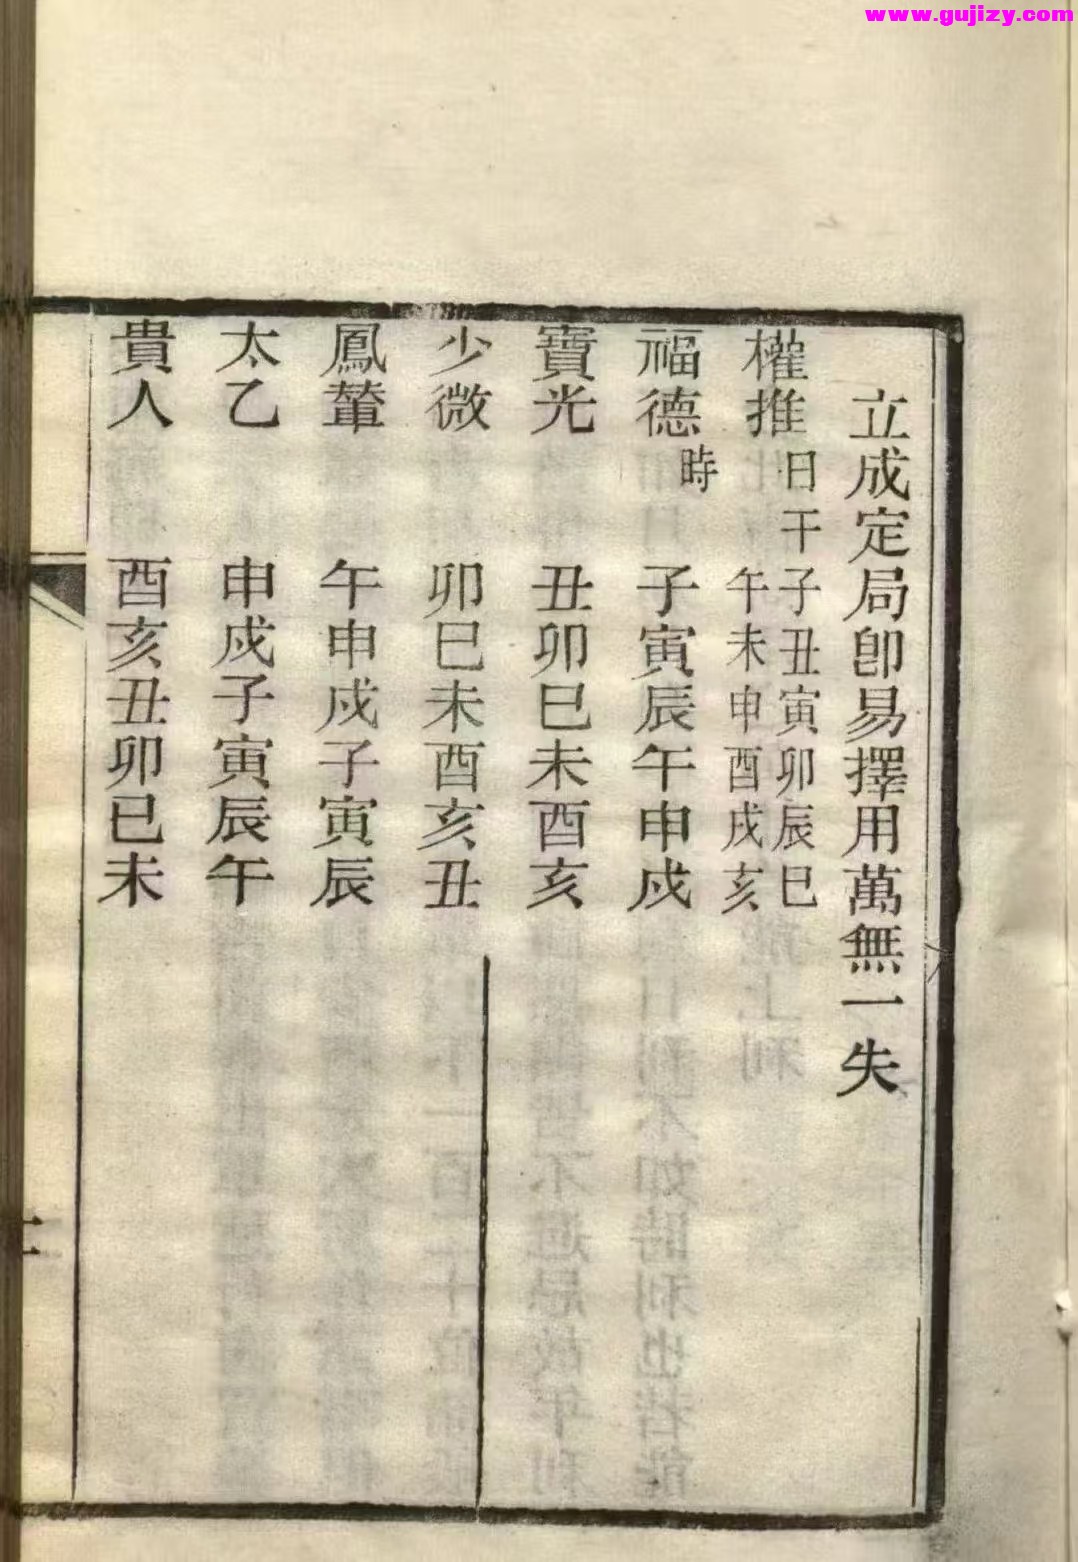 www.gujizy.com
立成定局卽易擇用萬無一失
權推日干子丑寅卯辰巳
午未申酉戌亥
福德時子寅辰午申戌
寶光丑卯巳未酉亥
少微卯巳未酉亥丑
鳳輦午申戌子寅辰
太乙申戌子寅辰午
貴人酉亥丑卯巳未